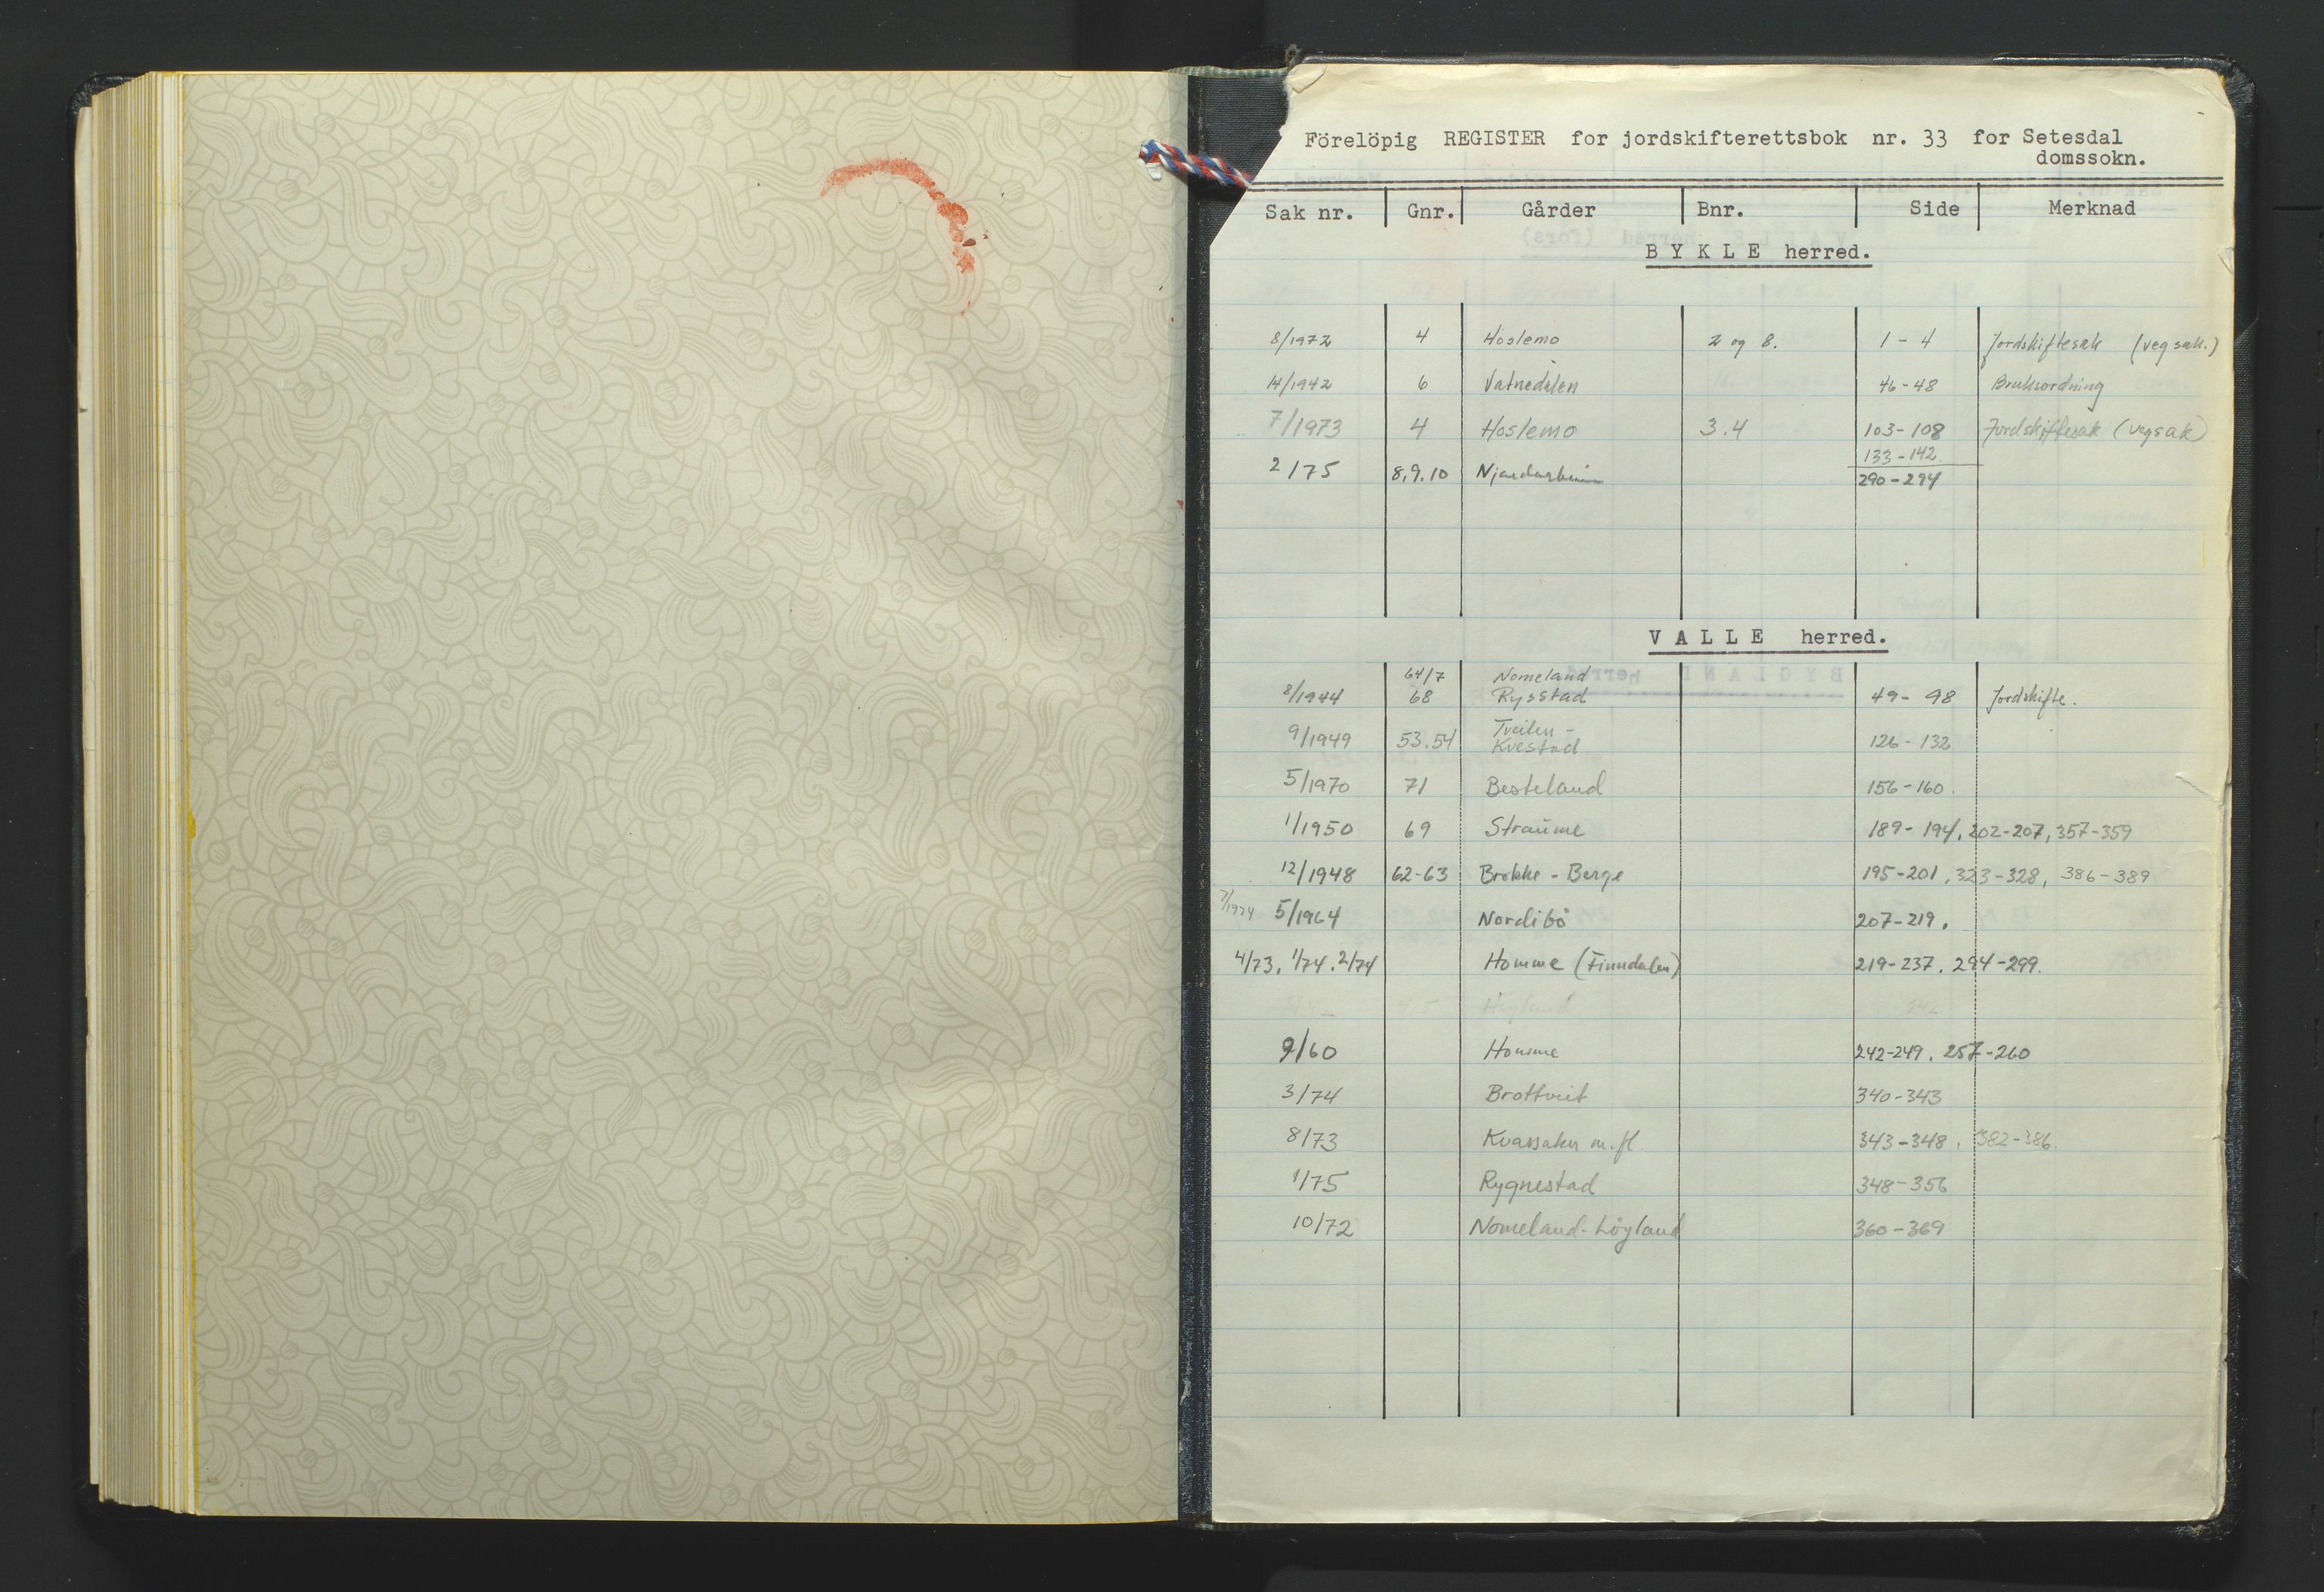 Förelöpig REGISTER for jordskifterettsbok nr. 33 for Setesdal
domssokn.
Sak nr. Gnr. Gårder Bnr. Side Merknad
BYKLE herred.
8/1972 4 Hoslemo 2 og 8. 1 - 4 Jordskiftesak (vegsak.)
14/1942 6 Vatnedalen 46-48 Bruksordning
7/1973 4 Hoslemo 3.4 103-108 Jordskiftesak (vegsak)
133-142
2/75 8,9.10 Njardarheim 290-294
VALLE herred.
64/7 Nomeland
8/1944 68 Rysstad 49- 98 Jordskifte.
Tveiten -
9/1949 53.54 Kvestad 126-132
5/1970 71 Besteland 156-160.
1/1950 69 Straume 189-194, 202-207, 357-359
12/1948 62-63 Brokke - Berge 195-201, 323-328, 386-389
7/1974 5/1964 Nordibö 207-219.
4/73, 1/74. 2/74 Homme (Finndalen) 219-237. 294-299.
9/60 Homme 242-249. 257-260
3/74 Brottveit 340-343
8/73 Kvassaker m.fl. 343-348, 382-386.
1/75 Rygnestad 348-356
10/72 Nomeland-Löyland 360-369